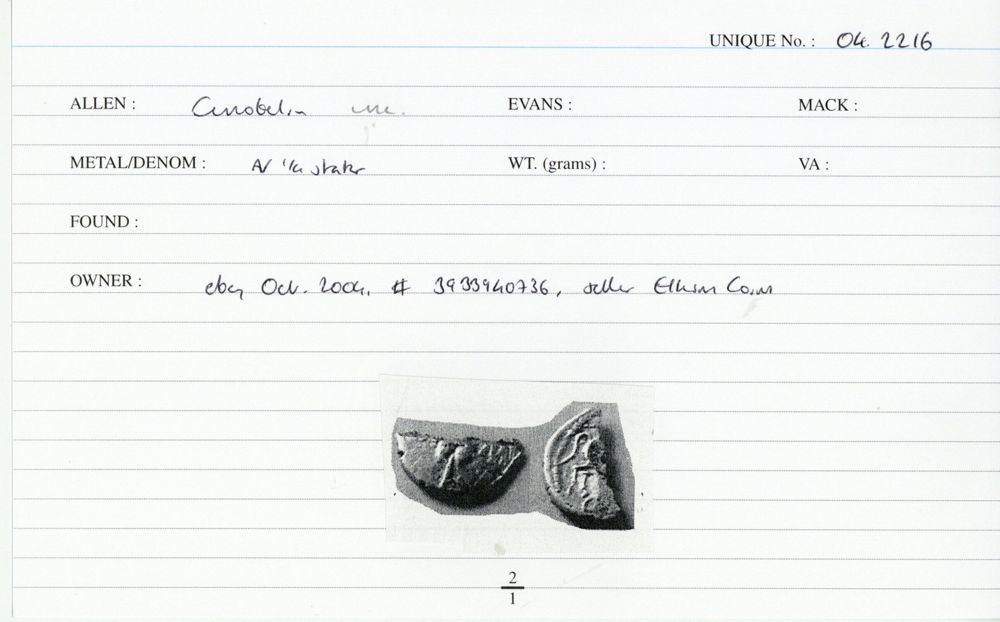 UNIQUE No. : 04. 2216
ALLEN : Cunobelin unc. EVANS : MACK :
METAL/DENOM : AV 1/4 stater WT. (grams) : VA :
FOUND :
OWNER : ebay Oct. 2004, # 3933940736, seller Elkson Coins
2
1